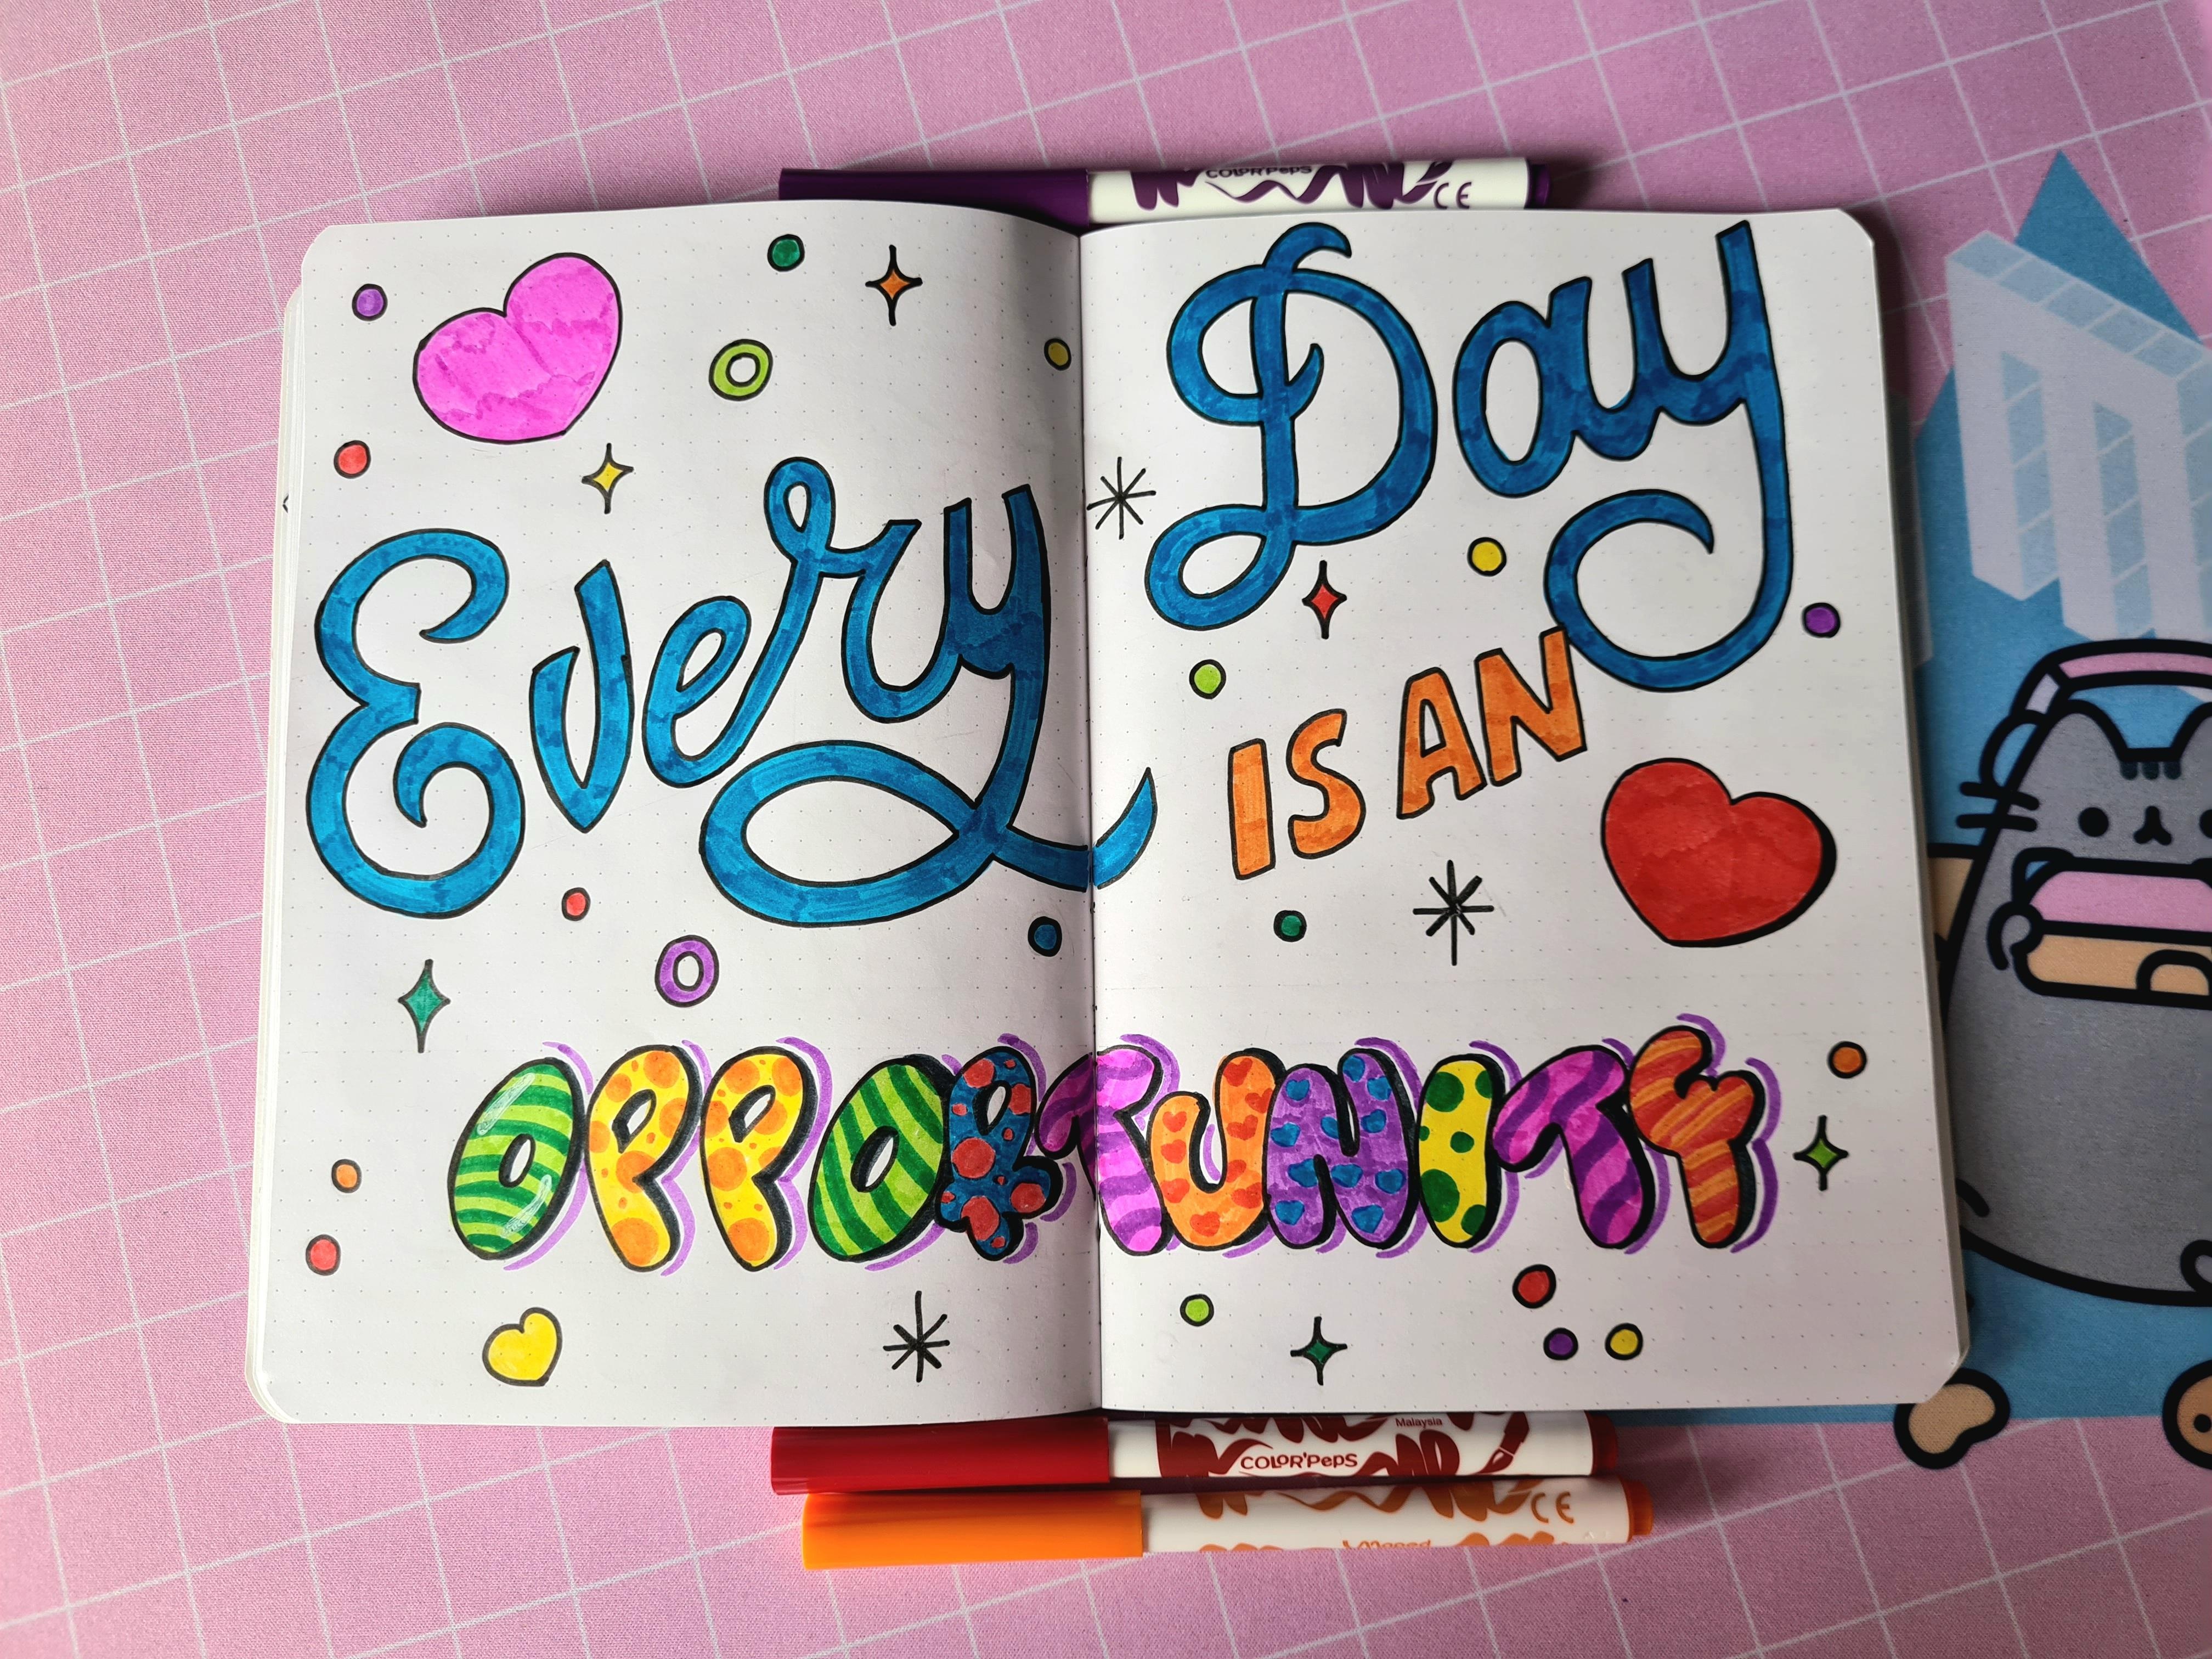 COLOR'PEPS
CE
Every Day
IS AN
OPPORTUNITY
Malaysia
COLOR'PEPS
CE
Maped